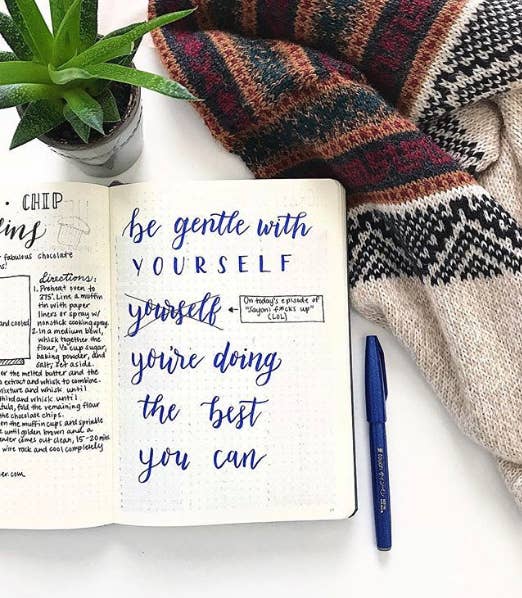 • CHIP
fins
fabulous chocolate
Directions:
1. Preheat oven to
375°. Line a muffin
tin with paper
liners or spray w/
nonstick cooking spray.
and cooled
2. In a medium bowl,
whisk together the
flour, 1/2 cup sugar,
baking powder, and
salt; set aside.
the melted butter and the
extract and whisk to combine.
mixture and whisk until
and whisk until
fold the remaining flour
the chocolate chips.
the muffin cups and sprinkle
until golden brown and a
comes out clean, 15-20 min
wire rack and cool completely
be gentle with
YOURSELF
yourself
On today's episode of
"Sayani f*cks up"
(LOL)
you're doing
the best
you can